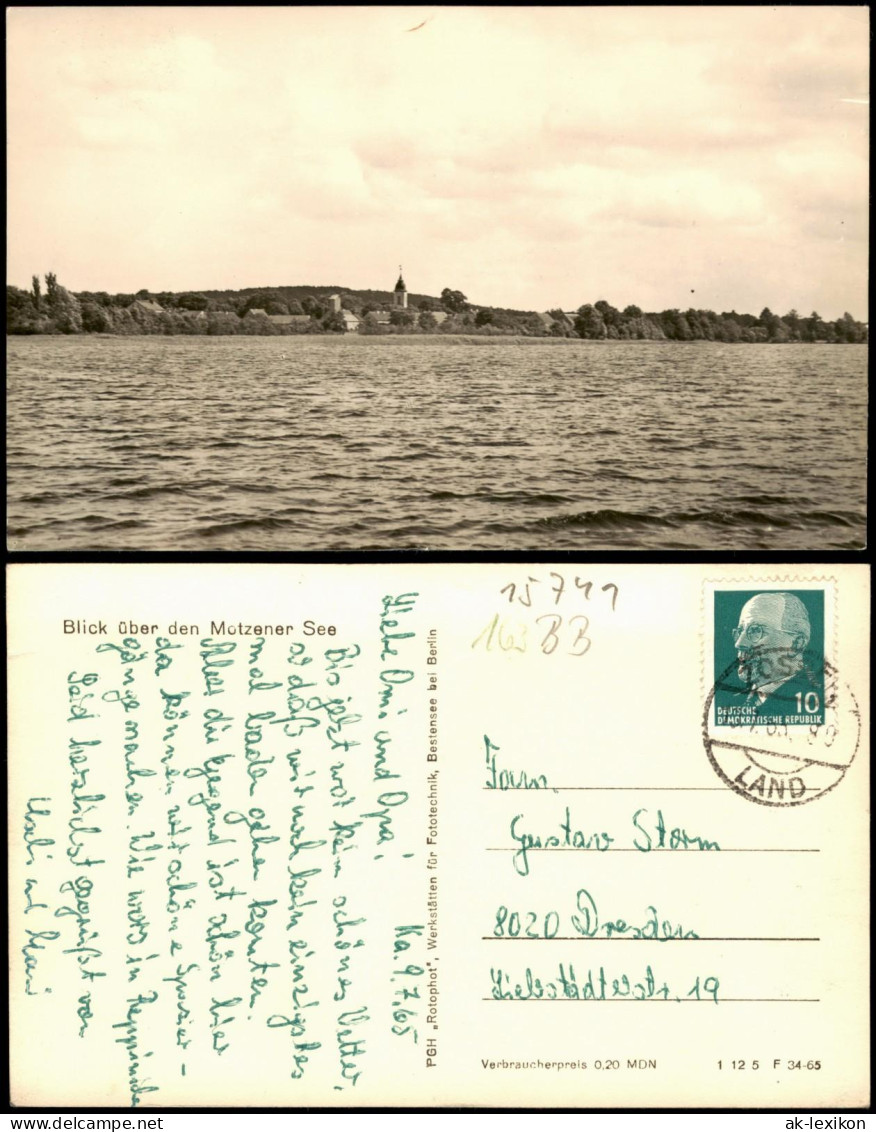 Blick über den Motzener See
Liebe Omi und Opa!
Ka. 9.7.65
Bis jetzt war kein schönes Wetter,
so daß wir noch kein einzigstes
mal baden gehen konten.
Alles die Gegend ist schön hier
da können wir schöne Spazier-
gänge machen. Wie wars in
Seid herzlichst gegrüßt von
und
PGH „Rotophot", Werkstätten für Fototechnik, Bestensee bei Berlin
15741
163 BB
DEUTSCHE
DEMOKRATISCHE REPUBLIK
10
LAND
Fam.
Gustav Storm
8020 Dresden
Liebstädterstr. 19
Verbraucherpreis 0,20 MDN
1 12 5 F 34-65
ak-lexikon
www.delcampe.net